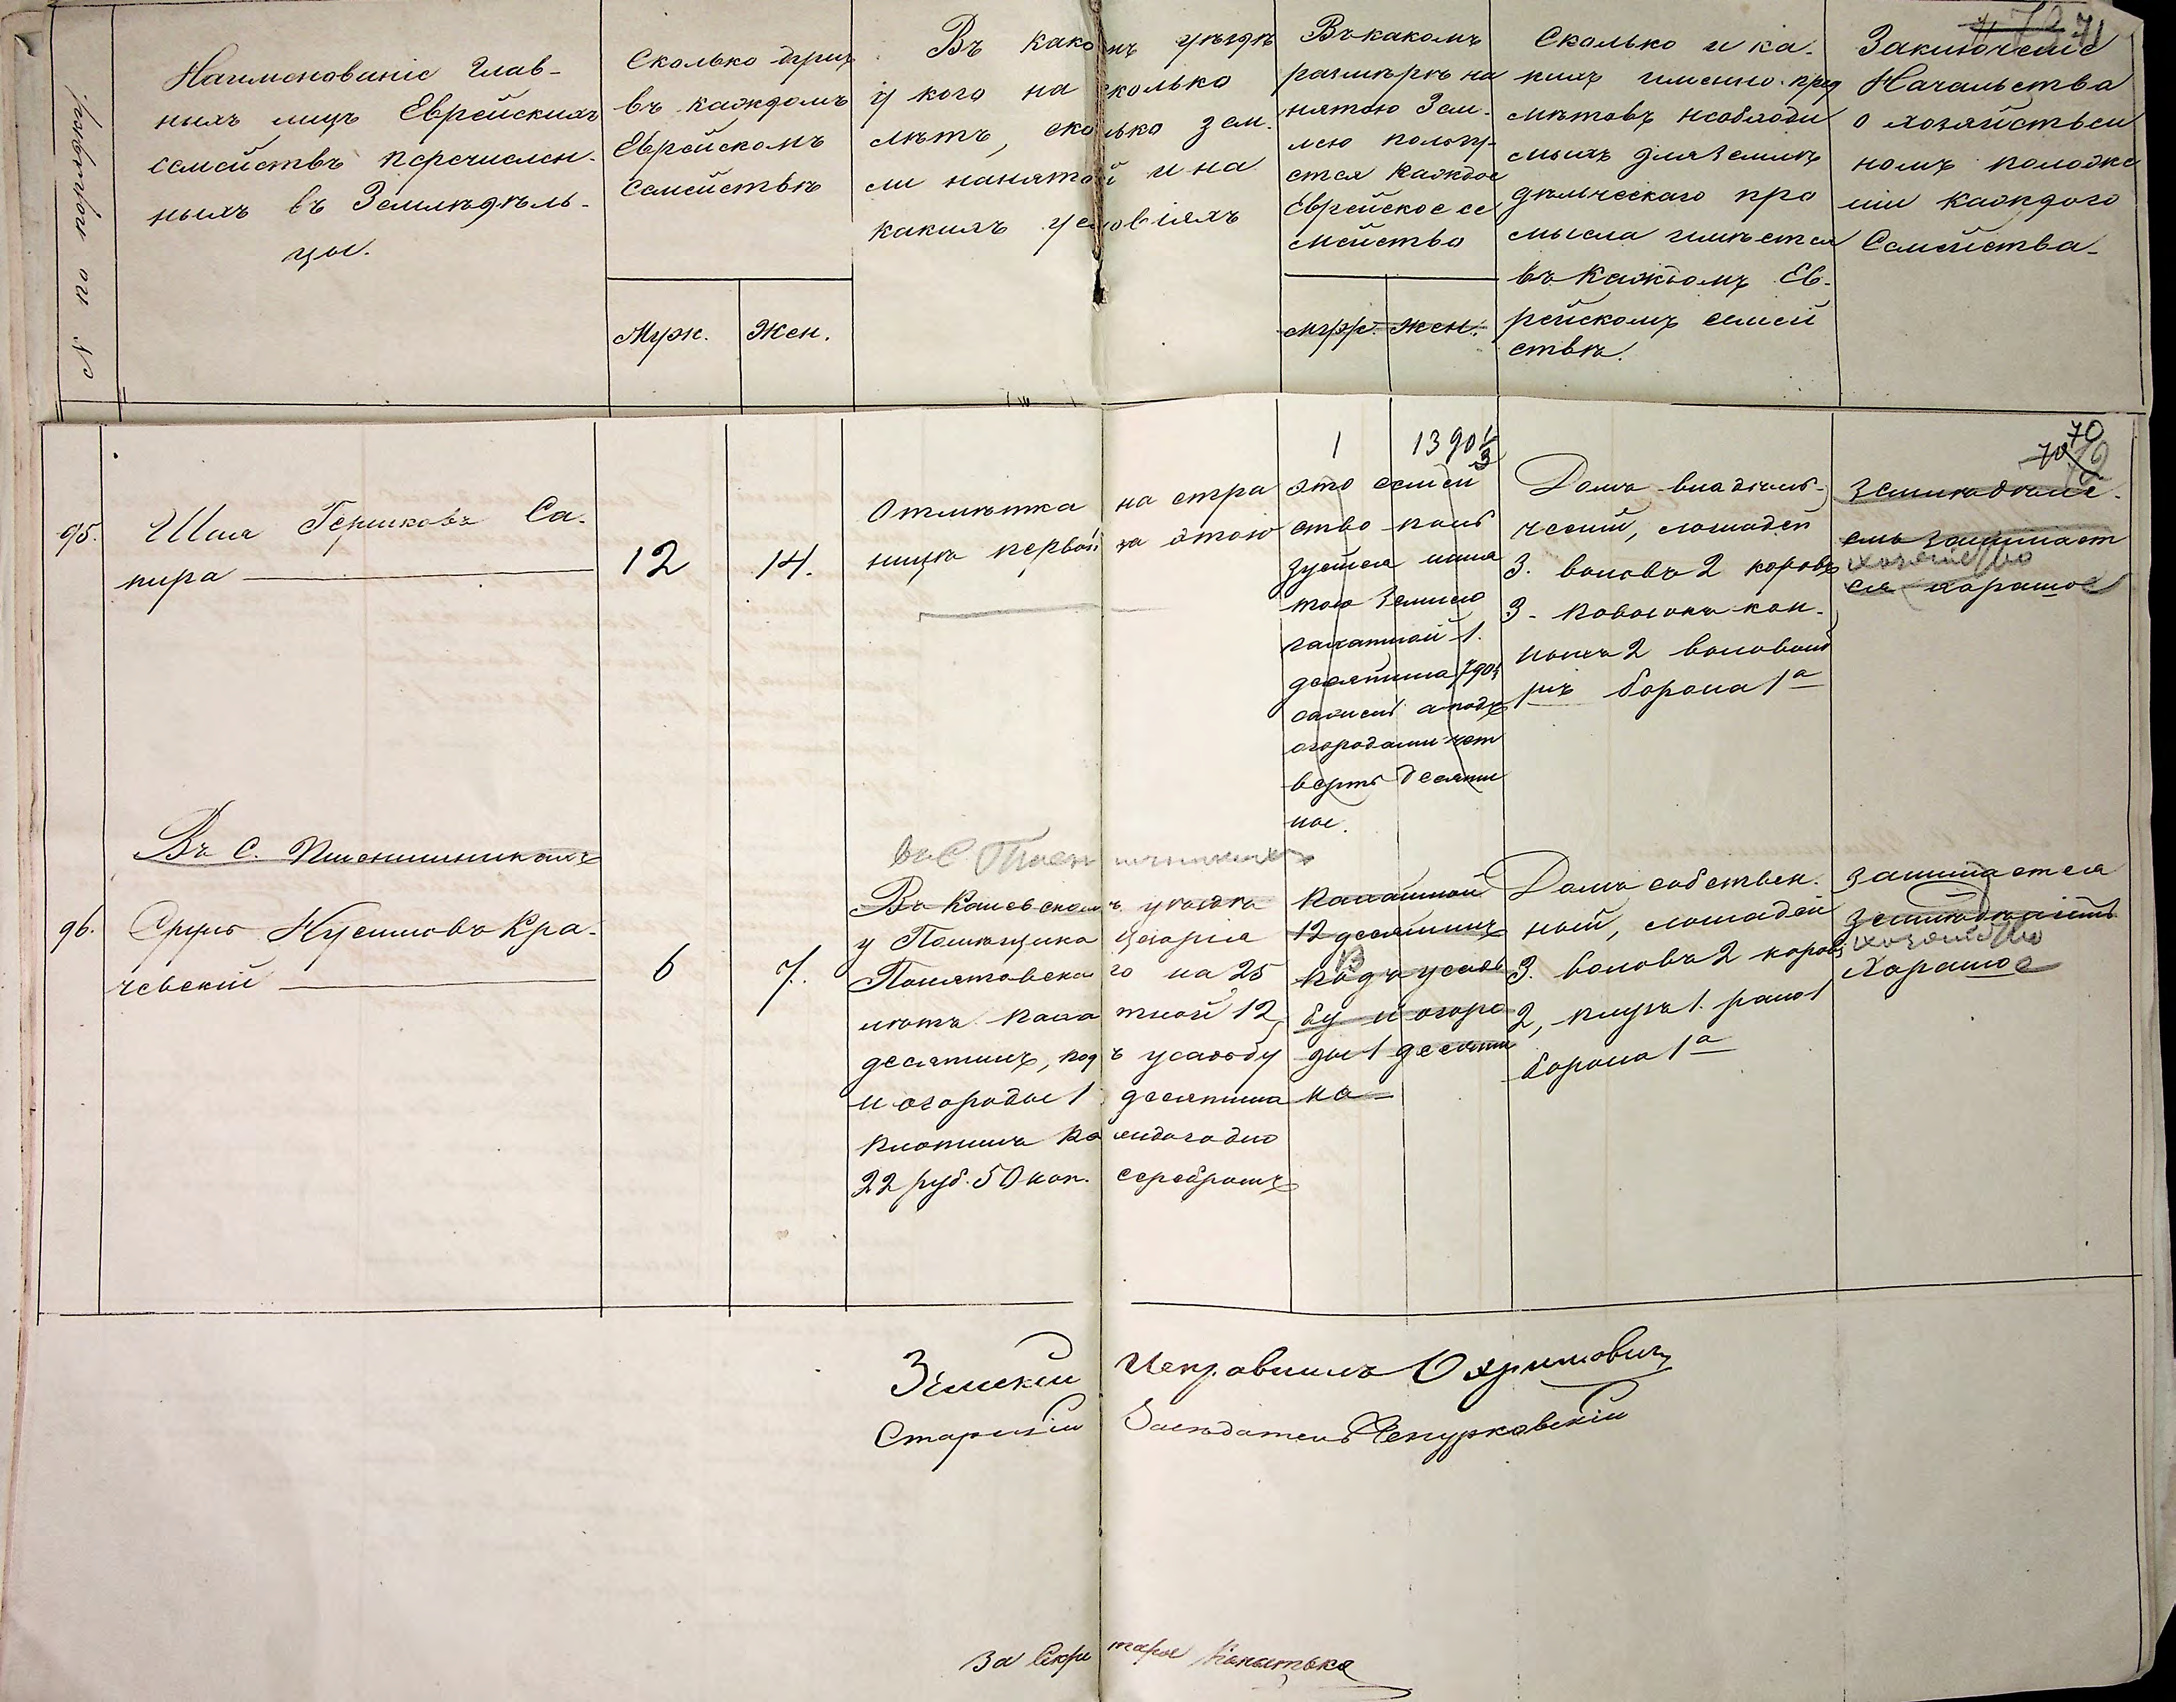 71
N по порядку.
Наименованіе Глав-
ныхъ лицъ Еврейскихъ
семействъ перечислен-
ныхъ въ Земледѣль-
цы.
Сколько душъ
въ каждомъ
Еврейскомъ
Семействѣ
Муж.
Жен.
Въ какомъ уѣздѣ
у кого на сколько
лѣтъ, сколько зем.
ли нанятой и на
какихъ условіяхъ
Въ какомъ
размѣрѣ на
нятою Зем-
лею пользу-
ется каждое
Еврейское се
мейство
муж. жен.
Сколько и ка-
кихъ именно пред
метовъ необходи
мыхъ для земле
дѣльческаго про
мысла имѣется
въ каждомъ Ев-
рейскомъ семей
ствѣ.
Заключеніе
Начальства
о хозяйствен
номъ положе
ніи каждого
Семейства
70
95.
Шая Гершковъ Са-
пира
12
14.
Отмѣтка на стра
ницѣ первой за этою
1 13 90 1/3
это семей
ство поль
зуется наня
тою землею
пахатной 1.
десятина
сажень а подъ
огородами чет
верть десяти
ны.
Домъ владѣль-
ческій, лошадей
3. воловъ 2 коровъ
3. повозокъ кон-
ныхъ 2 воловыхъ
борона 1а
земледѣлі-
емъ занимает
хозяйство
ся хорошое
Въ С. Пшенишникахъ
въ С Пшеничникахъ
96.
Сруль Нусимовъ Кра-
чевскій
6
7.
Въ Каневскомъ уѣздѣ
у Помѣщика Цезарія
Понятовскаго на 25
лѣтъ пахатной 12
десятинъ, подъ усадьбу
и огороды 1 десятина
платитъ каждогодно
22 руб. 50 коп. серебромъ
Пахатной
12 десятинъ
13
подъ усадь
бу и огоро
ды 1 десяти
на
Домъ собствен-
ный, лошадей
3. воловъ 2 коровъ
2, плугъ 1. рало 1
борона 1а
занимается
земледѣліемъ
хозяйство
Хорошое
Земскій Исправникъ Охримовичъ
Старшій Засѣдатель Чепурковскій
За Секретаря